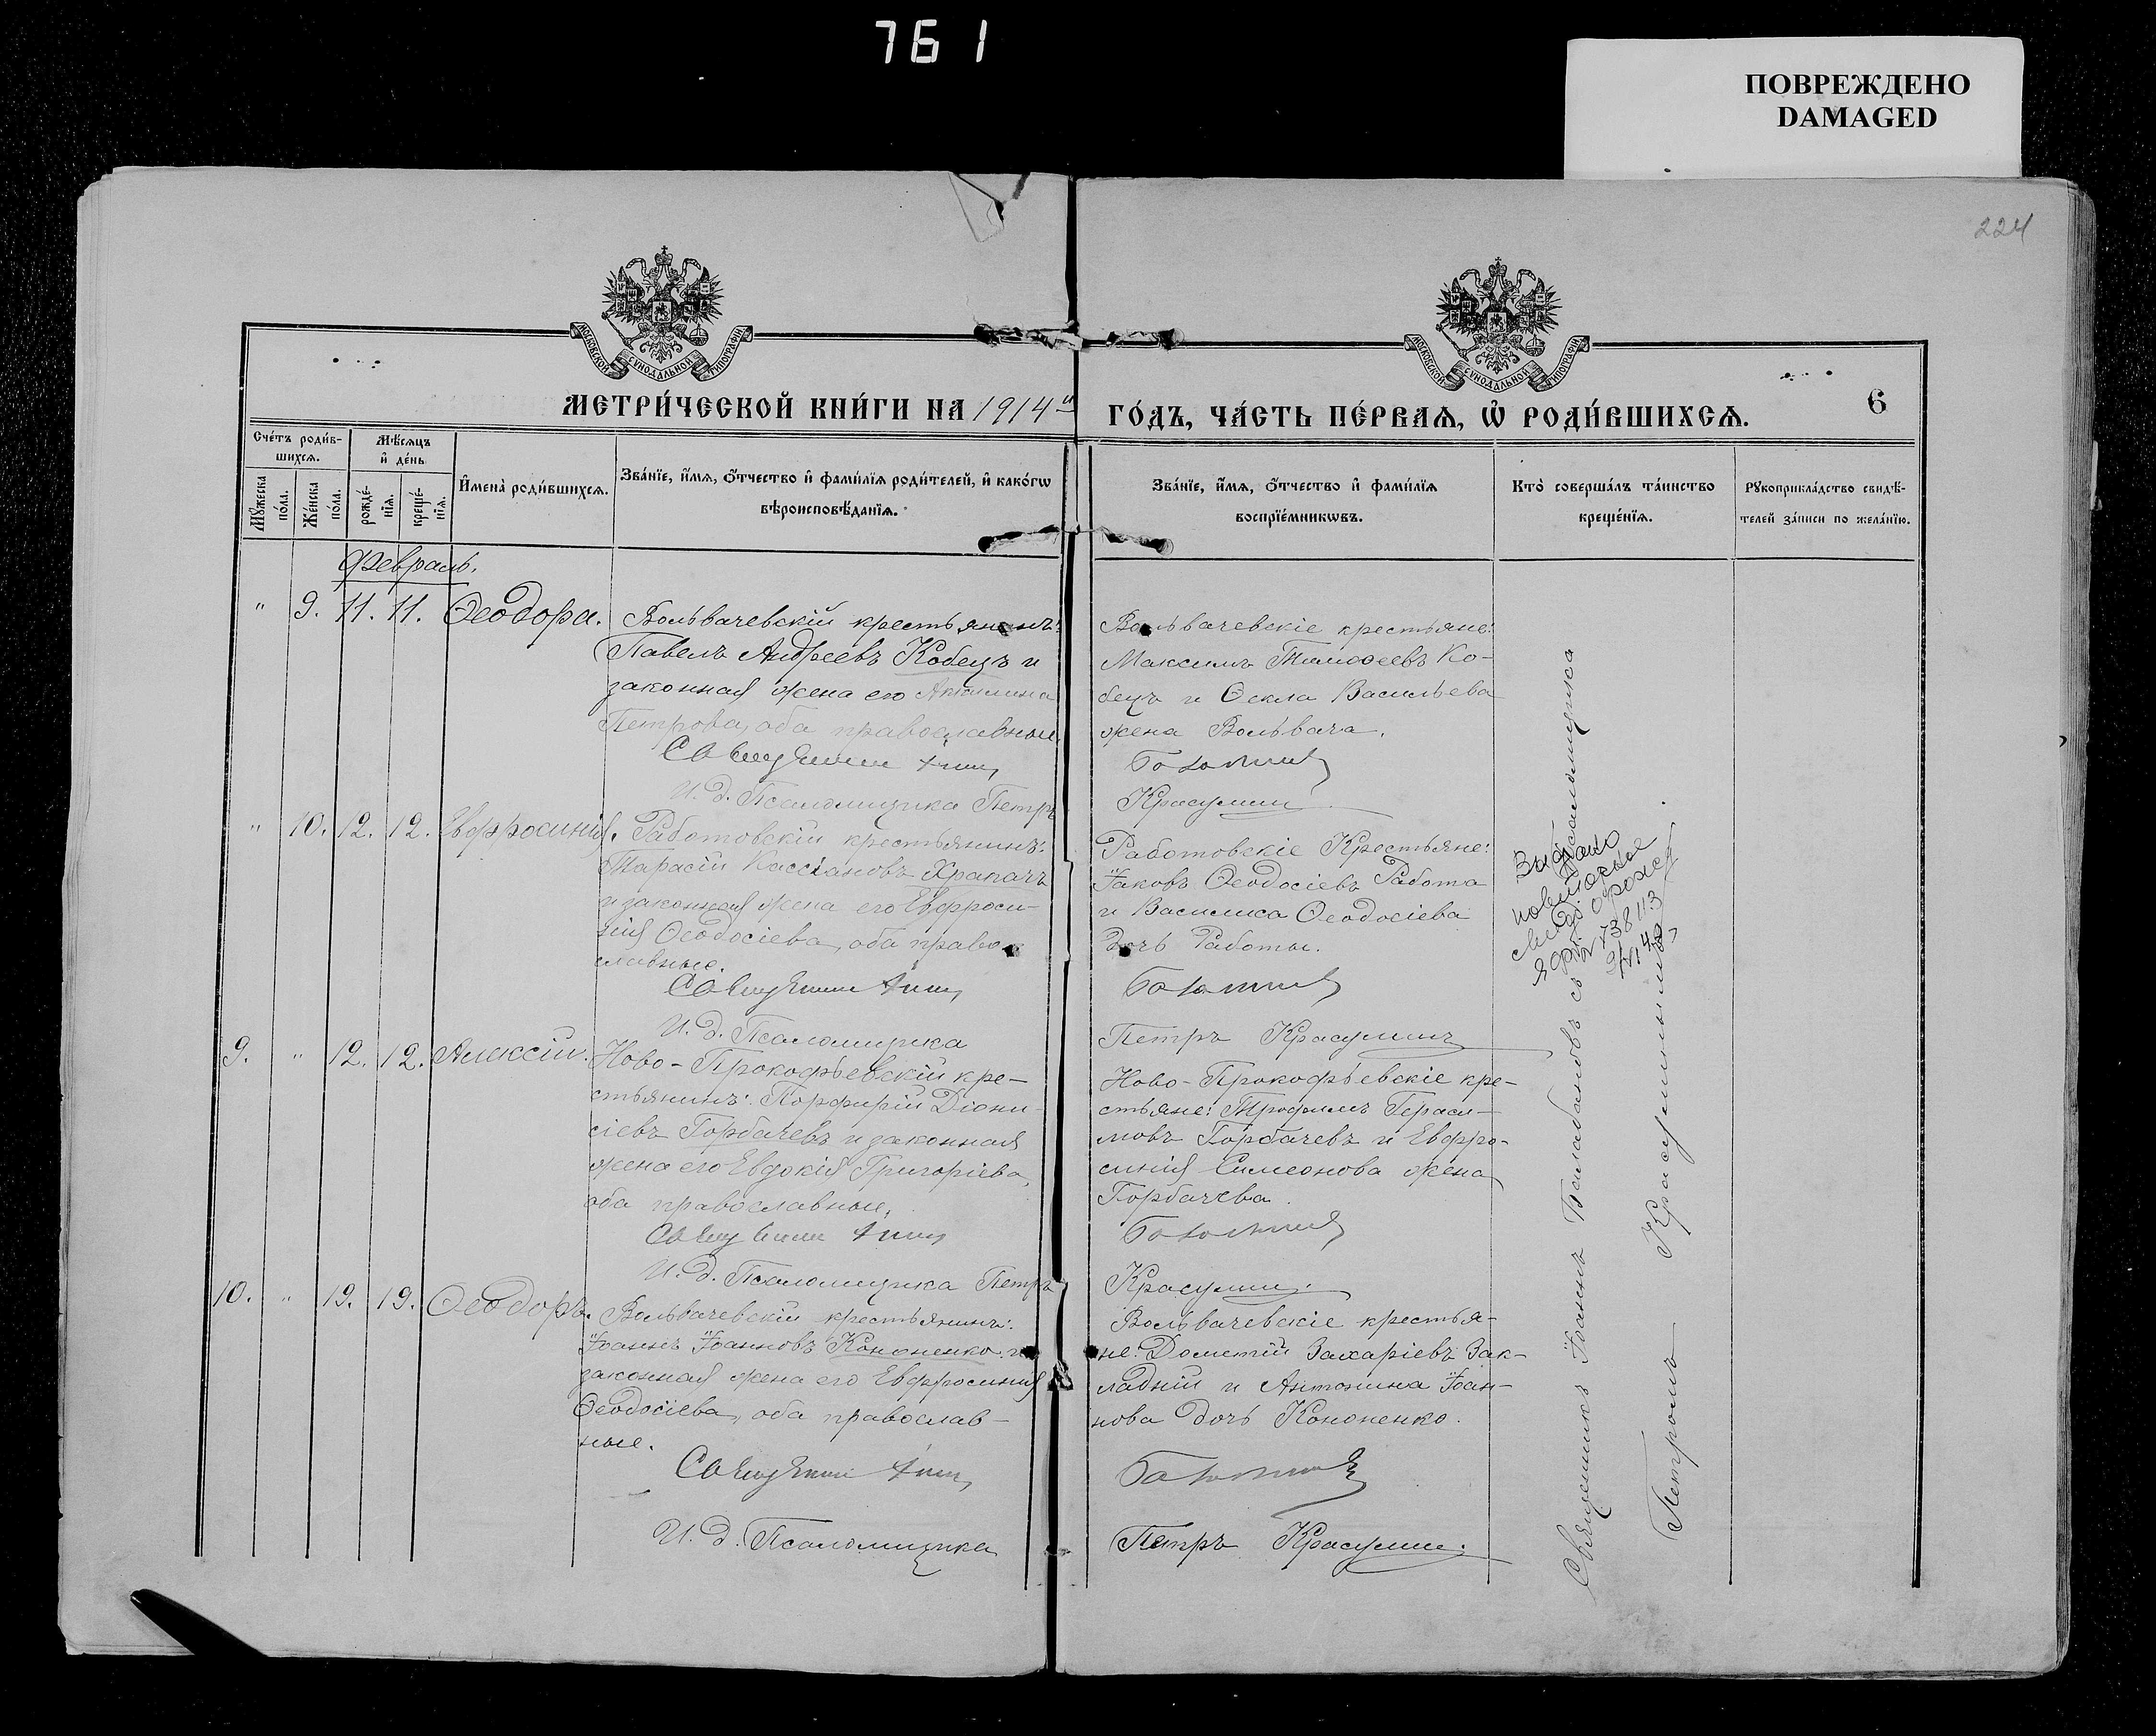 761
ПОВРЕЖДЕНО
DAMAGED
224
МОСКОВСКОЙ СѴНОДАЛЬНОЙ ТИПОГРАФІИ
МОСКОВСКОЙ СѴНОДАЛЬНОЙ ТИПОГРАФІИ
6
МЕТРИ́ЧЕСКОЙ КНИ́ГИ НА 1914й ГО́ДЪ, ЧА́СТЬ ПЕ́РВАѦ, Ѡ҆ РОДИ́ВШИХСѦ.
Сче́тъ роди́в-
шихсѧ.
Мꙋ́жеска
по́ла.
Же́нска
по́ла.
Мѣ́сѧцъ
и҆ де́нь
рожде́-
нїѧ.
креще́-
нїѧ.
И҆мена̀ роди́вшихсѧ.
Зва́нїе, и҆́мѧ, ѻ҆́тчество и҆ фами́лїѧ роди́телей, и҆ како́гѡ
вѣроисповѣ́данїѧ.
Зва́нїе, и҆́мѧ, ѻ҆́тчество и҆ фами́лїѧ
воспрїе́мникѡвъ.
Кто̀ соверша́лъ та́инство
креще́нїѧ.
Рꙋкоприкла́дство свидѣ́-
телей за́писи по жела́нїю.
Февраль.
" 9. 11. 11. Ѳеодора.
Вольвачевскій крестьянинъ:
Павелъ Андреевъ Кобецъ и
законная жена его Акилина
Петрова, оба православные.
И. д. Псаломщика Петръ
Вольвачевскіе крестьяне:
Максимъ Тимоѳеевъ Ко-
бецъ и Ѳекла Васильева
жена Вольвача.
Красулинъ
" 10. 12. 12. Евфросинія.
Работовскій крестьянинъ:
Тарасій Кассіановъ Храпачъ
и законная жена его Евфроси-
нія Ѳеодосіева, оба право-
славные.
И. д. Псаломщика
Работовскіе Крестьяне:
Іаковъ Ѳеодосіевъ Работа
и Василиса Ѳеодосіева
дочь Работы.
Петръ Красулинъ
9. " 12. 12. Алексій.
Ново-Прокофьевскій кре-
стьянинъ: Порфирій Діони-
сіевъ Горбачевъ и законная
жена его Евдокія Григоріева,
оба православные.
И. д. Псаломщика Петръ
Ново-Прокофьевскіе кре-
стьяне: Трофимъ Гераси-
мовъ Горбачевъ и Евфро-
синія Симеонова жена
Горбачева.
Красулинъ.
10. " 19. 19. Ѳеодоръ.
Вольвачевскій крестьянинъ:
Іоаннъ Іоанновъ Кононенко и
законная жена его Евфросинія
Ѳеодосіева, оба православ-
ные.
И. д. Псаломщика
Вольвачевскіе крестья-
не: Дометій Захаріевъ Зак-
ладній и Антонина Іоан-
нова дочь Кононенко.
Петръ Красулинъ.
Священникъ Іоаннъ Балабановъ съ и. д. Псаломщика
Петромъ Красулинымъ.